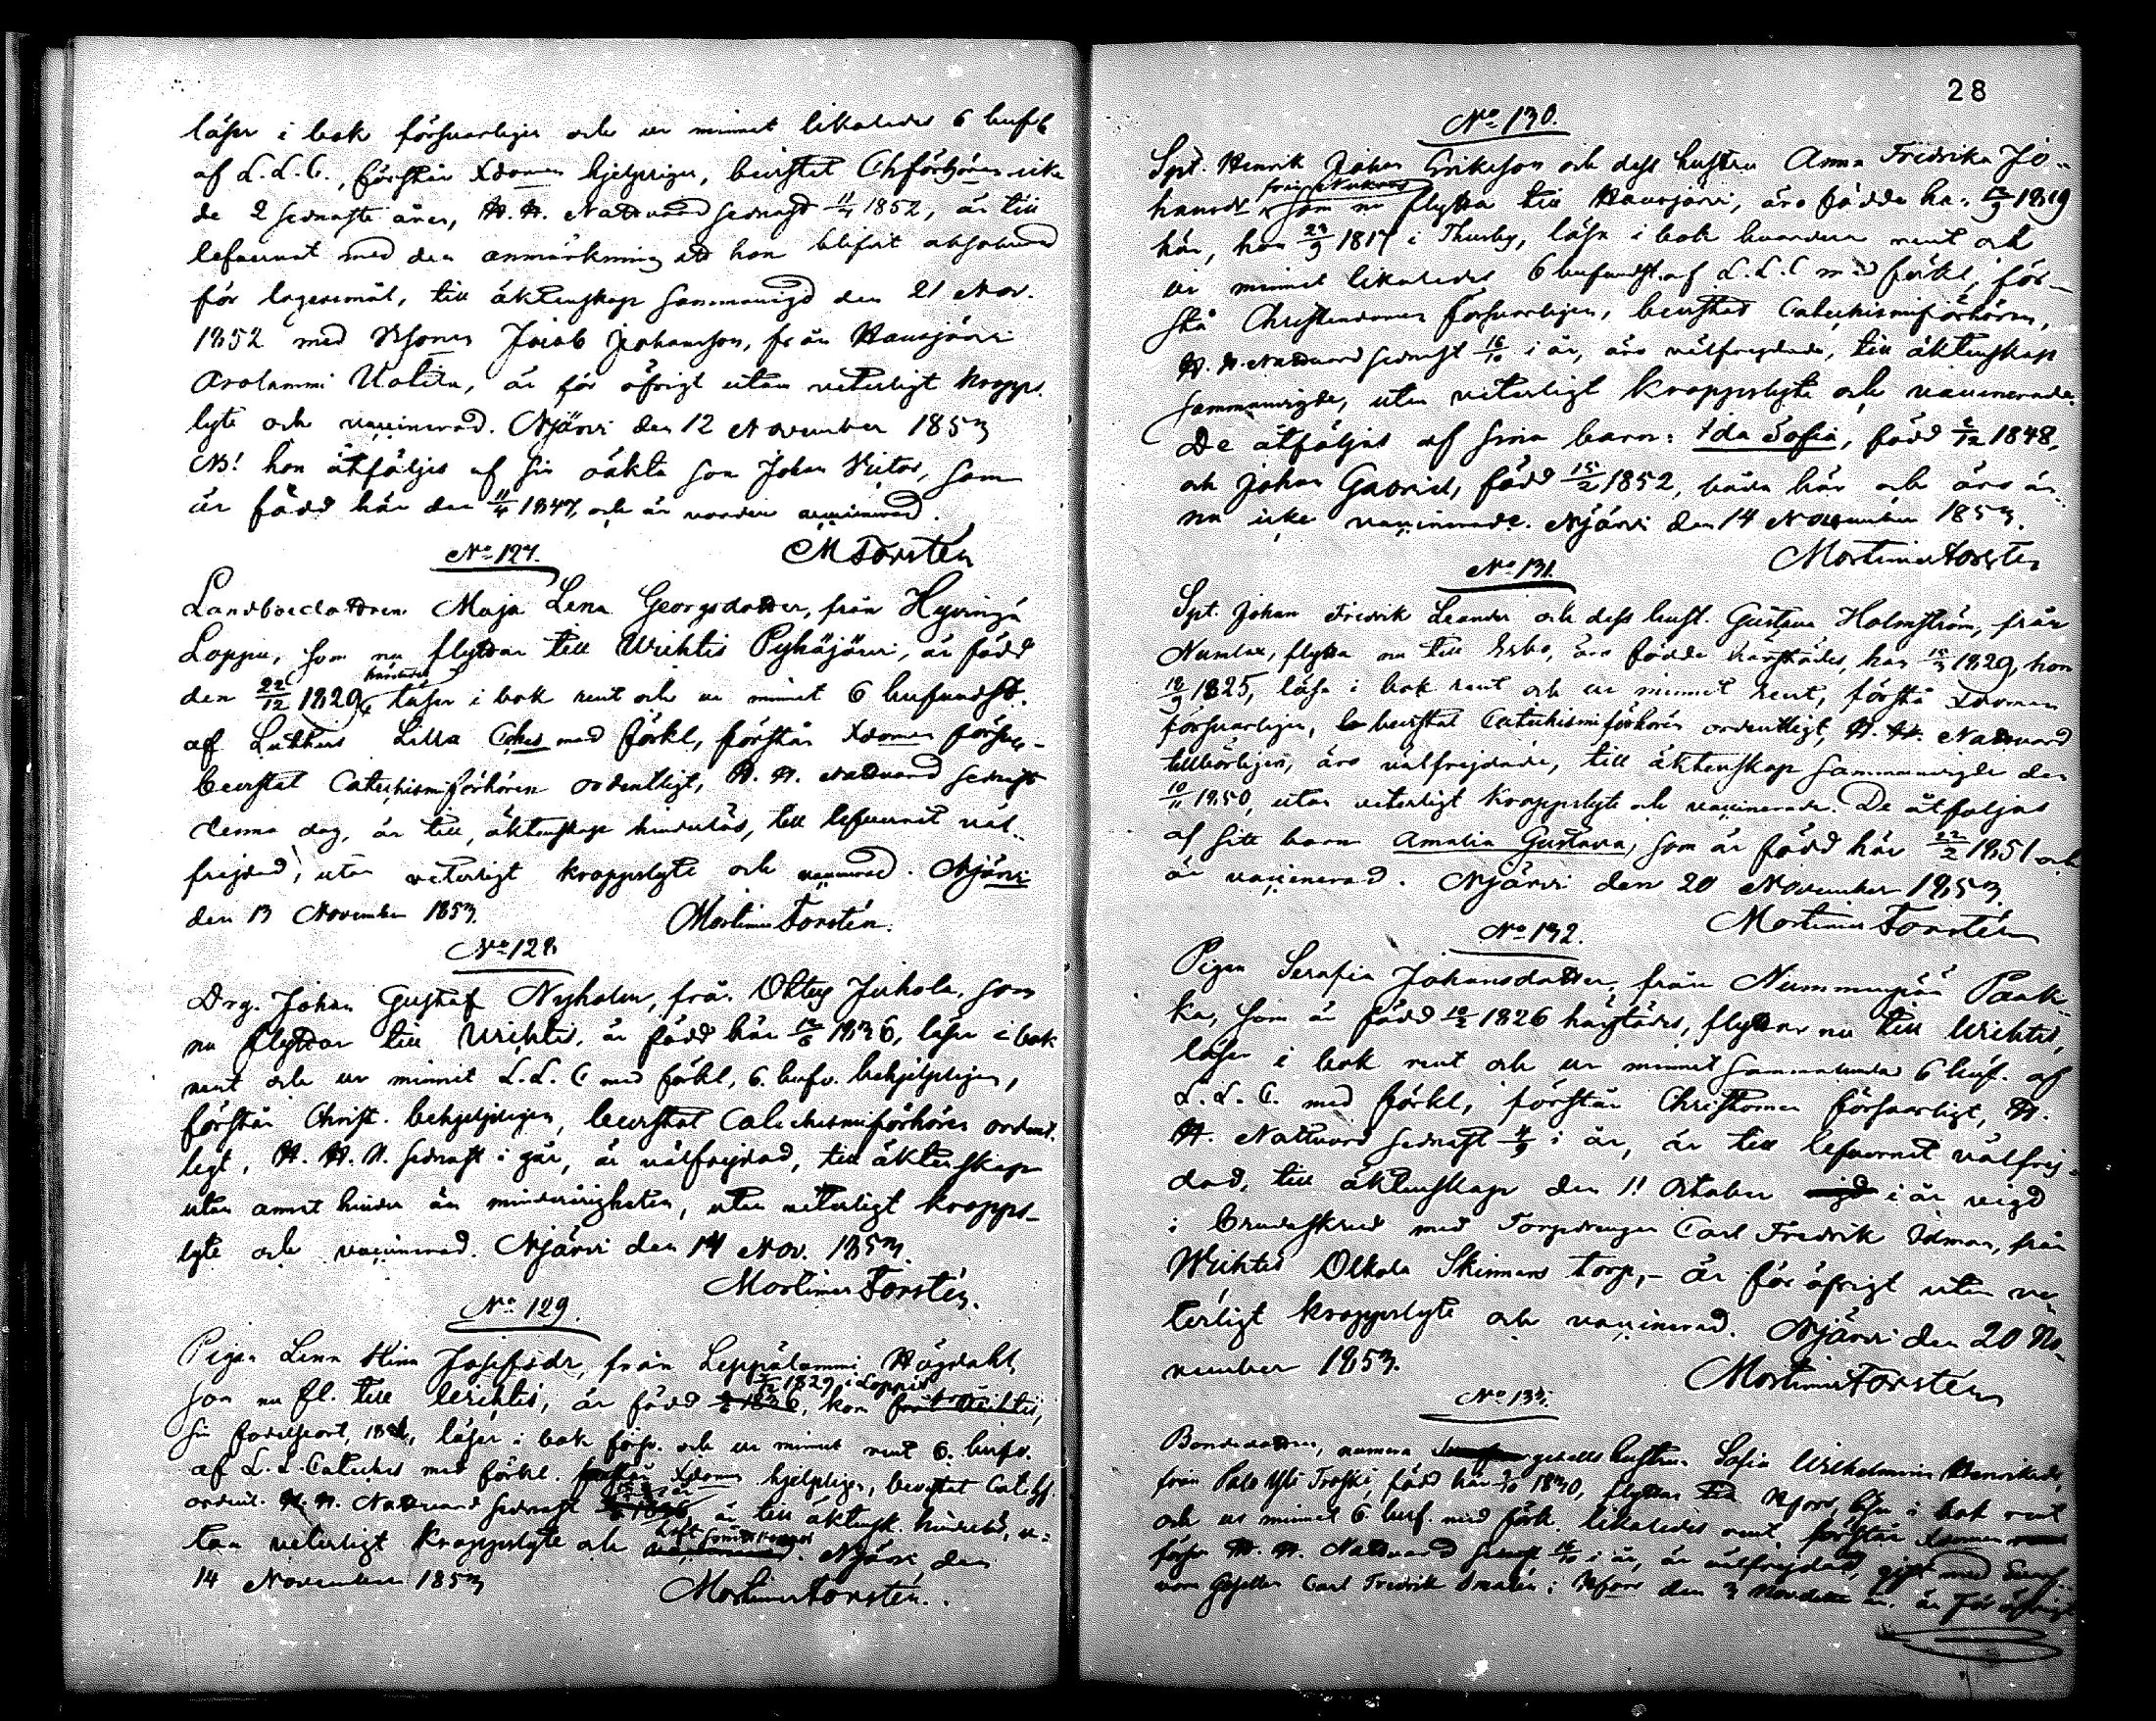 läser i bok försvarligen och ur minnet likaledes 6 hufst
af L. L. C., förstår Xdomen hjelpligen, bevistat Chförhören icke
de 2 sednaste åren, H. H. Nattvard sednast 11/4 1852, är till
lefvernet med den anmärkning att hon blifvit absolverad
för lägersmål, till äktenskap sammanvigd den 21 Nov.
1852 med Jacob Johansson, från Hausjärvi
Arolammi Uotila, är för öfrigt utan veterligt kropps-
lyte och vaccinerad. Njärvi den 12 November 1853
NB! hon åtföljes af sin oäkta son Johan Victor, som
är född här den 11/4 1847, och är vorden vaccinerad.
M Forstén
No 127.
Landboedottren Maja Lena Georgsdotter, från Hyvingä
Loppu, som nu flyttar till Wichtis Pyhäjärvi, är född
härstädes
den 22/12 1829, läser i bok rent och ur minnet 6 hufvudst.
af Luthers Lilla Ches med förkl, förstår Xdomen försv.
bevistat Catechismiförhören ordentligt, H. H. Nattvard sednast
denna dag, är till äktenskap hinderlös, till lefvernet väl-
frejdad, utan veterligt kroppslyte och vaccinerad. Njärvi
den 13 November 1853.
Mortimer Forstén.
No 128.
Drg. Johan Gustaf Nyholm, från Juhola, som
nu flyttar till Wichtis, är född här 12/6 1836, läser i bok
rent och ur minnet L. L. C med förkl, 6. hufv. behjelpligen,
förstår Christ. behjelpligen, bevistat Catechismiförhören ordent-
ligt, H. H. N. sednast i går, är välfrejdad, till äktenskap
utan annat hinder än minderårigheten, utan veterligt kropps-
lyte och vaccinerad. Njärvi den 14 Nov. 1853.
Mortimer Forstén.
No 129.
Pigan Lena Stina Josefsdr, från Leppälammi Högdahl,
1829 i Loppis
som nu fl. till Wichtis, är född, kom från Wichtis,
sin födelseort, läser i bok försv. och ur minnet rent 6. hufv.
af L. L. Catches med förkl. förstår Xdomen hjelpligen, bevistat
ordent. H. H. Nattvard sednast är till äktensk. hinderlös, u-
haft smittkoppor
tan veterligt kroppslyte och vaccinerad. Njärvi den
14 November 1853
Mortimer Forstén.
28
No 130.
Spt. Henrik Johan Eriksson och dess hustru Anna Fredrika Jo-
hansdr som nu flytta till Hausjärvi, äro födde han 1819
här, hon 1817 i Thusby, läsa i bok hvardera rent och
ur minnet likaledes 6 hufvudst. af L. L. C med förkl, för-
stå Christendomen försvarligen, bevistat Catechismiförhören,
H. H. Nattvard sednast 16/10 i år, äro välfrejdade, till äktenskap
sammanvigde, utan veterligt kroppslyte och vaccinerade.
De åtföljas af sina barn: Ida Sofia, född 2/12 1848,
och Johan Gabriel, född 15/2 1852, båda här och äro än
nu icke vaccinerade. Njärvi den 14 November 1853.
Mortimer Forstén
No 131.
Spt. Johan Fredrik Leander och dess hust. Gustava Holmström, från
Numlax, flytta nu till Esbo, äro födda härstädes, han 1829, hon
1825, läsa i bok rent och ur minnet rent, förstå Xdomen
försvarligen, bevistat Catechismiförhören ordentligt, H. H. Nattvard
tillbörligen, äro välfrejdade, till äktenskap sammanvigde den
10/11 1850, utan veterligt kroppslyte och vaccinerade. De åtföljas
af sitt barn Amalia Gustava, som är född här 22/2 1851 och
är vaccinerad. Njärvi den 20 November 1853.
Mortimer Forstén
No 132.
Pigan Serafia Johansdotter, från Nummenpää Paak-
ka, som är född 1826 härstädes, flyttar nu till Wichtis,
läser i bok rent och ur minnet sammalunda 6 huf. af
L. L. C. med förkl, förstår Christomen försvarligt, H.
H. Nattvard sednast 4/9 i år, är till lefvernet välfrej-
dad, till äktenskap den 11 October i år vigd
i brudaskrud med Torpdrengen Carl Fredrik Idman, från
Wichtis Olkola Skinnars torp, – är för öfrigt utan ve-
terligt kroppslyte och vaccinerad. Njärvi den 20 No-
vember 1853.
Mortimer Forstén
No 133.
Bondedottren, numera gesells hustrun Sofia Wilhelmina Henriksdr,
från Palo Yli Troski, född här 1830, flyttar till Hfors, läser i bok rent
och ur minnet 6. huf. med förk. likaledes rent, förstår Xdomen
försv. H. H. Nattvard sednast 16/10 i år, är välfrejdad, gift med
Gesellen Carl Fredrik i Hfors den 3 Nov. är för öfrigt